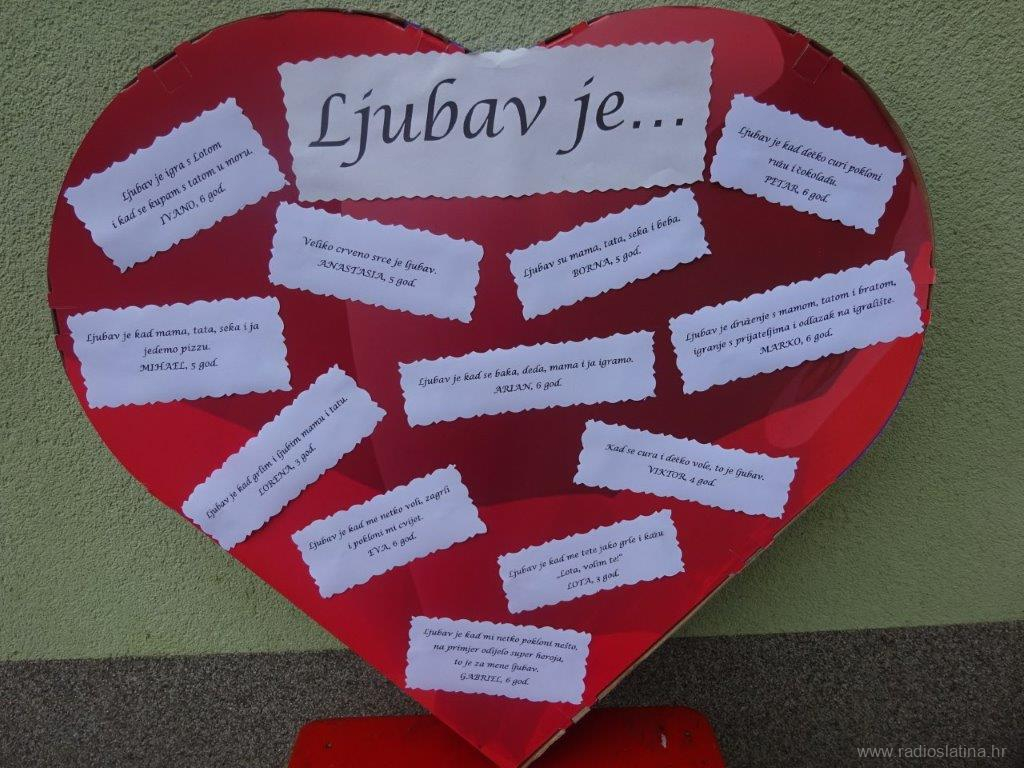 Ljubav je...
Ljubav je igra s Lotom
i kad se kupam s tatom u moru.
IVANO, 6 god.
Ljubav je kad dečko curi pokloni
ružu i čokoladu.
PETAR, 6 god.
Veliko crveno srce je ljubav.
ANASTASIA, 5 god.
Ljubav su mama, tata, seka i beba.
BORNA, 5 god.
Ljubav je kad mama, tata, seka i ja
jedemo pizzu.
MIHAEL, 5 god.
Ljubav je kad se baka, deda, mama i ja igramo.
ARIAN, 6 god.
Ljubav je druženje s mamom, tatom i bratom,
igranje s prijateljima i odlazak na igralište.
MARKO, 6 god.
Ljubav je kad grlim i ljubim mamu i tatu.
LORENA, 3 god.
Kad se cura i dečko vole, to je ljubav.
VIKTOR, 4 god.
Ljubav je kad me netko voli, zagrli
i pokloni mi cvijet.
EVA, 6 god.
Ljubav je kad me tete jako grle i kažu
„Lota, volim te!“
LOTA, 3 god.
Ljubav je kad mi netko pokloni nešto,
na primjer odijelo super heroja,
to je za mene ljubav.
GABRIEL, 6 god.
www.radioslatina.hr